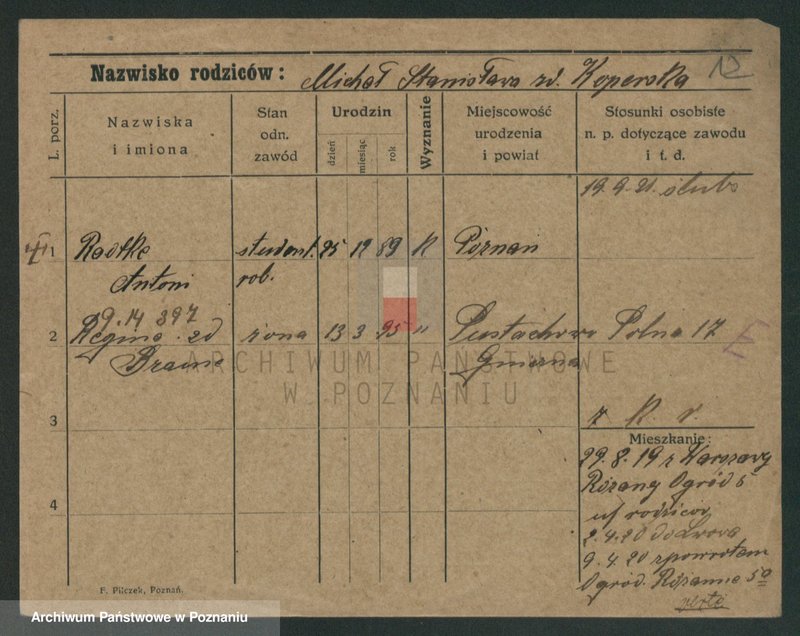 Nazwisko rodziców: Michał Stanisława zd. Koperska
12
L. porz.
Nazwiska i imiona
Stan odn. zawód
Urodzin
dzień
miesiąc
rok
Wyznanie
Miejscowość urodzenia i powiat
Stosunki osobiste n. p. dotyczące zawodu i t. d.
19.9.21 ślub
1 Radtke student. 25 12 89 K Poznań
Antoni rob.
9.14 397
2 Regina zd żona 13 3 95 " Pustachowo Polna 17
Gniezno
3
K. r.
Mieszkanie:
29.8.19 z Warszawy
Różany Ogród 5
4
u/ rodziców
2.4.20 do Lwowa
9.4.20 zpowrotem
Ogród. Różanne 5a
verte
F. Pilczek, Poznań.
ARCHIWUM PAŃSTWOWE
W POZNANIU
Archiwum Państwowe w Poznaniu